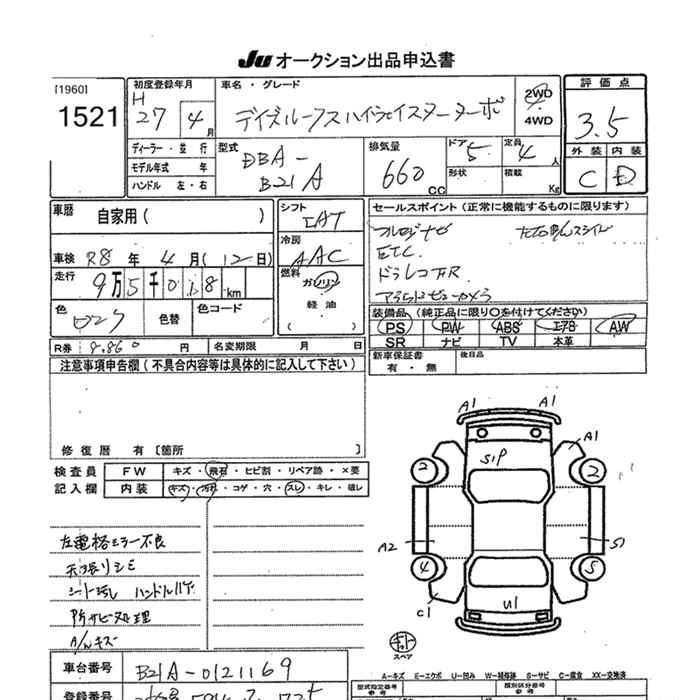 Ju オークション出品申込書
[1960]
1521
初度登録年月
H
27 4月
車名・グレード
デイズルークスハイウェイスターターボ
2WD
4WD
評価点
3.5
外装 内装
C D
ディーラー・並行
モデル年式 年
ハンドル 左・右
型式
DBA-
B21A
排気量
660
cc
ドア 5
形状
定員 4人
積載 Kg
車歴
自家用( )
車検 R8年 4月(12日)
走行 9万5千018km
色
色替
色コード
シフト
IAT
冷房
AAC
燃料
ガソリン
軽油
( )
セールスポイント(正常に機能するものに限ります)
フルセグナビ
ETC
ドラレコF.R
アラウンドビューカメラ
装備品(純正品に限り○を付けてください)
PS PW ABS エアB AW
SR ナビ TV 本革
新車保証書
有・無
後日品
R券 9.860円
名変期限 月 日
注意事項申告欄(不具合内容等は具体的に記入して下さい)
修復歴 有[箇所 ]
検査員
記入欄
FW キズ・飛石・ヒビ割・リペア跡・×要
内装 キズ・汚れ・コゲ・穴・スレ・キレ・破レ
左電格ミラー不良
天張りシミ
シート汚し ハンドルハゲ
防サビ処理
A/Wキズ
A1 A1
A1
S1P
2 2
A2 S1
4 5
C1
U1
スペア
A-キズ E-エクボ U-凹み W-補修跡 S-サビ C-腐食 XX-交換済
車台番号 B21A-0121169
登録番号
型式指定番号
参考
類別区分番号
参考